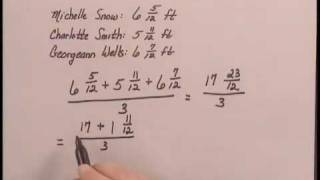 Michelle Snow: 6 5/12 ft
Charlotte Smith: 5 11/12 ft
Georgeann Wells: 6 7/12 ft
(6 5/12 + 5 11/12 + 6 7/12)/3 = (17 23/12)/3
= (17 + 1 11/12)/3